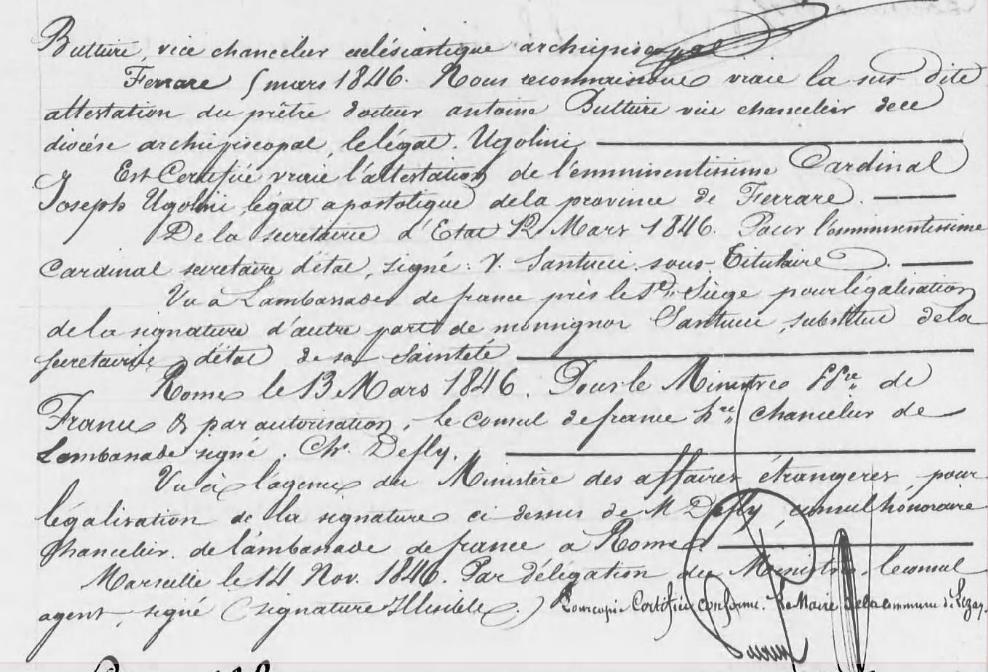 Butture, vice chancelier eclésiastique archiépiscopal
Ferrare 5 mars 1846. Nous reconnaissons vraie la sus dite
attestation du prêtre docteur antoine Butture vice chancelier de ce
diocèse archiépiscopal, le légat. Ugolini,
Est Certifiée vraie l'attestation de l'emminentissime Cardinal
Joseph Ugolini, légat apostolique de la province de Ferrare.
De la Secretairie d'Etat 12 Mars 1846. Pour l'emminentissime
Cardinal secretaire d'état, signé: V. Santucci sous-Titulaire.
Vu à L'ambassade de france près le St. Siège pour légalisation
de la signature d'autre part de monsignor Santucci, substitut de la
secretairie d'état de sa Sainteté
Rome le 13 Mars 1846. Pour le Ministre de
France & par autorisation, le consul de france hre. chancelier de
Lambassade signé. Chr. Defly.
Vu à l'agence du Ministère des affaires étrangères, pour
légalisation de la signature ci dessus de M Defly, consul honoraire
Chancelier de l'ambassade de france à Rome
Marseille le 14 Nov. 1846. Par délégation du Ministre, le consul
agent, signé (signature Illisible.) Pour copie Certifiée conforme. Le Maire de la commune de